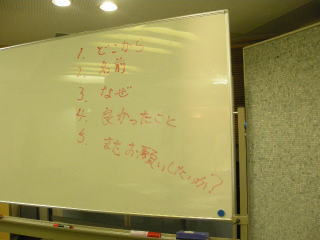 1. どこから
2. 名前
3. なぜ
4. 良かったこと
5. またお願いしたいか?